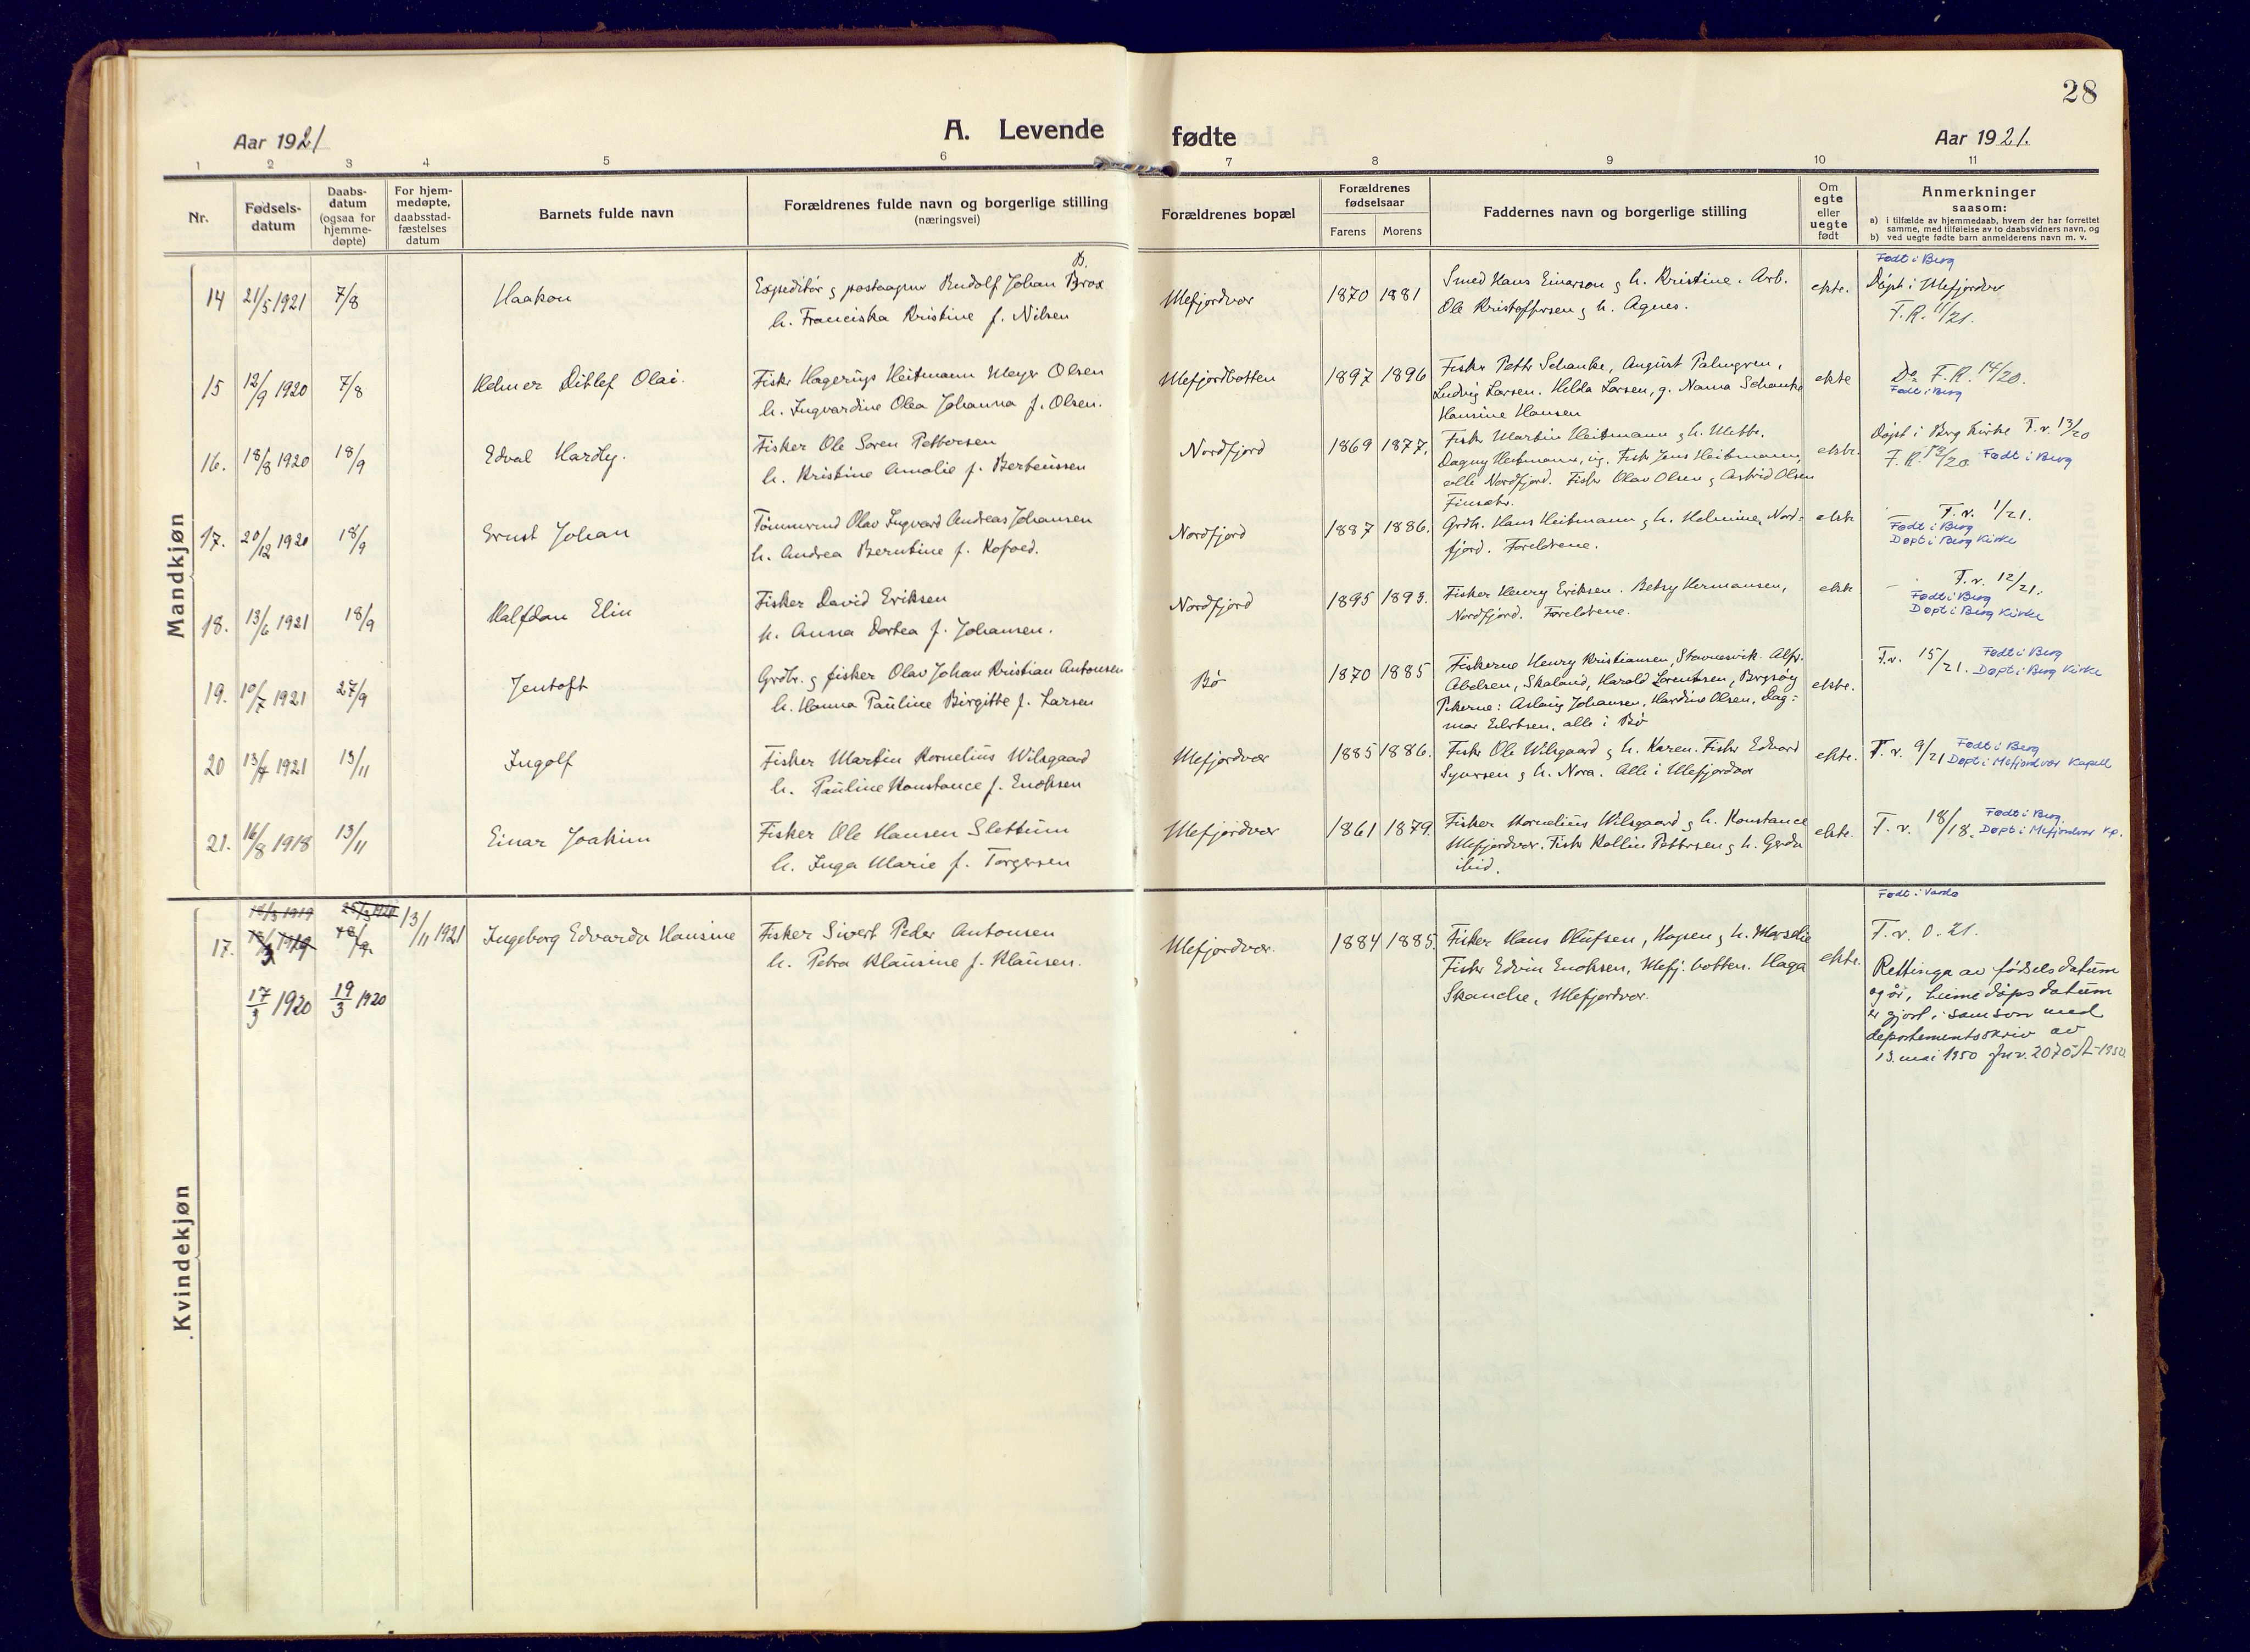 28
A. Levende fødte
Aar 1921
Aar 1921.
1 2 3 4 5 6 7 8 9 10 11
Nr.
Fødsels-
datum
Daabs-
datum
(ogsaa for
hjemme-
døpte)
For hjem-
medøpte,
daabsstad-
fæstelses
datum
Barnets fulde navn
Forældrenes fulde navn og borgerlige stilling
(næringsvei)
Forældrenes bopæl
Forældrenes
fødselsaar
Farens Morens
Faddernes navn og borgerlige stilling
Om
egte
eller
uegte
født
Anmerkninger
saasom:
a) i tilfælde av hjemmedaab, hvem der har forrettet
samme, med tilføielse av to daabsvidners navn, og
b) ved uegte fødte barn anmelderens navn m. v.
Mandkjøn
14 21/5 1921 7/8
Haakon
B.
Expeditør g postaapner Rudolf Johan Brox
h. Franciska Kristine f. Nilsen
Mefjordvær
1870 1881
Smed Hans Einerson g h. Kristine. Arb.
Ole Kristoffersen g h. Agnes.
ekte.
Født i Berg
Døpt i Mefjordvær
F.R. 11/21.
15 12/9 1920 7/8
Helmer Ditlef Olai.
Fisker Hagerup Heitmann Meyer Olsen
h. Ingvardine Olea Johanna f. Olsen.
Mefjordbotten
1897 1896
Fisker Petter Schanke, August Palmgren,
Ludvig Larsen. Hilda Larsen, g. Nanna Schanke
Hansine Hansen
ekte
Do F.R. 14/20.
Født i Berg
16. 18/8 1920 18/9
Edval Hardly.
Fisker Ole Soren Pettersen
h. Kristine Amalie f. Berteussen
Nordfjord
1869 1877.
Fisker Martin Heitmann g h. Mette.
Dagny Heitmann, ug. Fisk Jens Heitmann,
alle Nordfjord. Fisker Olav Olsen g Astrid Olsen
Finsæter.
ekte.
Døpt i Berg Kirke T.v. 13/20
F.R. 13/20. Født i Berg
17. 20/12 1920 18/9
Ernst Johan
Tømmermd Olav Ingvard Andreas Johansen
h. Andrea Berntine f. Kofoed.
Nordfjord
1887 1886.
Grdbr. Hans Heitmann g h. Helmine, Nord-
fjord. Foreldrene.
ekte
T.v. 1/21.
Født i Berg
Døpt i Berg Kirke
18. 13/6 1921 18/9
Halfdan Elin
Fisker David Eriksen
h. Anna Dortea f. Johansen.
Nordfjord
1895 1893.
Fisker Henry Eriksen. Betsy Hermansen,
Nordfjord. Foreldrene.
ekte
T.v. 12/21.
Født i Berg
Døpt i Berg Kirke
19. 10/7 1921 27/9
Jentoft
Grdbr. g fisker Olav Johan Kristian Antonsen
h. Hanna Pauline Birgitte f. Larsen
Bø
1870 1885
Fiskerne Henry Kristiansen, Stavnesvik. Alfr.
Abelsen, Skaland, Harald Lorentsen, Bergsøy
Pikerne: Aslaug Johansen, Hardine Olsen, Dag-
mar Eilertsen, alle i Bø
ekte.
T.v. 15/21. Født i Berg
Døpt i Berg Kirke
20 13/7 1921 13/11
Ingolf
Fisker Martin Kornelius Wilsgaard
h. Pauline Konstance f. Enoksen
Mefjordvær
1885 1886.
Fisker Ole Wilsgaard g h. Karen. Fisker Edvard
Syversen g h. Nora. Alle i Mefjordvær
ekte.
T.v. 9/21 Født i Berg
Døpt i Mefjordvær Kapell
21. 16/8 1918 13/11
Einar Joakim
Fisker Ole Hansen Slettum
h. Inga Marie f. Torgersen
Mefjordvær
1861 1879.
Fisker Kornelius Wilsgaard g h. Konstance
Mefjordvær. Fisker Kollin Pettersen g h. Gerda
ibid.
ekte.
T.v. 18/18. Født i Berg.
Døpt i Mefjordvær Kp.
Kvindekjøn
17. 13/11 1921
17/3 1920 19/3 1920
Ingeborg Edvarda Hansine
Fisker Sivert Peder Antonsen
h. Petra Klausine f. Klausen.
Mefjordvær.
1884 1885.
Fisker Hans Olufsen, Hopen g h. Marselie
Fisker Edvin Enoksen, Mefj. botten. Haga
Skancke, Mefjordvær.
ekte.
Født i Vardø
T.v. 0. 21.
Rettinga av fødselsdatum
og år, heimedåpsdatum
er gjort i samsvar med
departementsskriv av
13. mai 1950